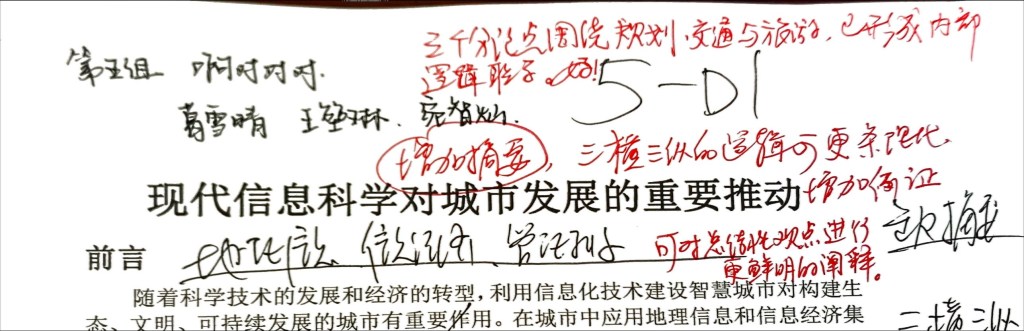 三个分论点围绕规划、交通与旅游，已形成内部
逻辑联系。好！
第五组 啊对对对
5-D1
葛雪晴 王 琳、宛智灿
增加摘要，三横三纵的逻辑可更条理化
增加例证
现代信息科学对城市发展的重要推动
可对总结性观点进行
更鲜明的阐释。
前言
地理信息、信息 、管理科学
摘要
随着科学技术的发展和经济的转型，利用信息化技术建设智慧城市对构建生
态、文明、可持续发展的城市有重要作用。在城市中应用地理信息和信息经济集
三横三纵